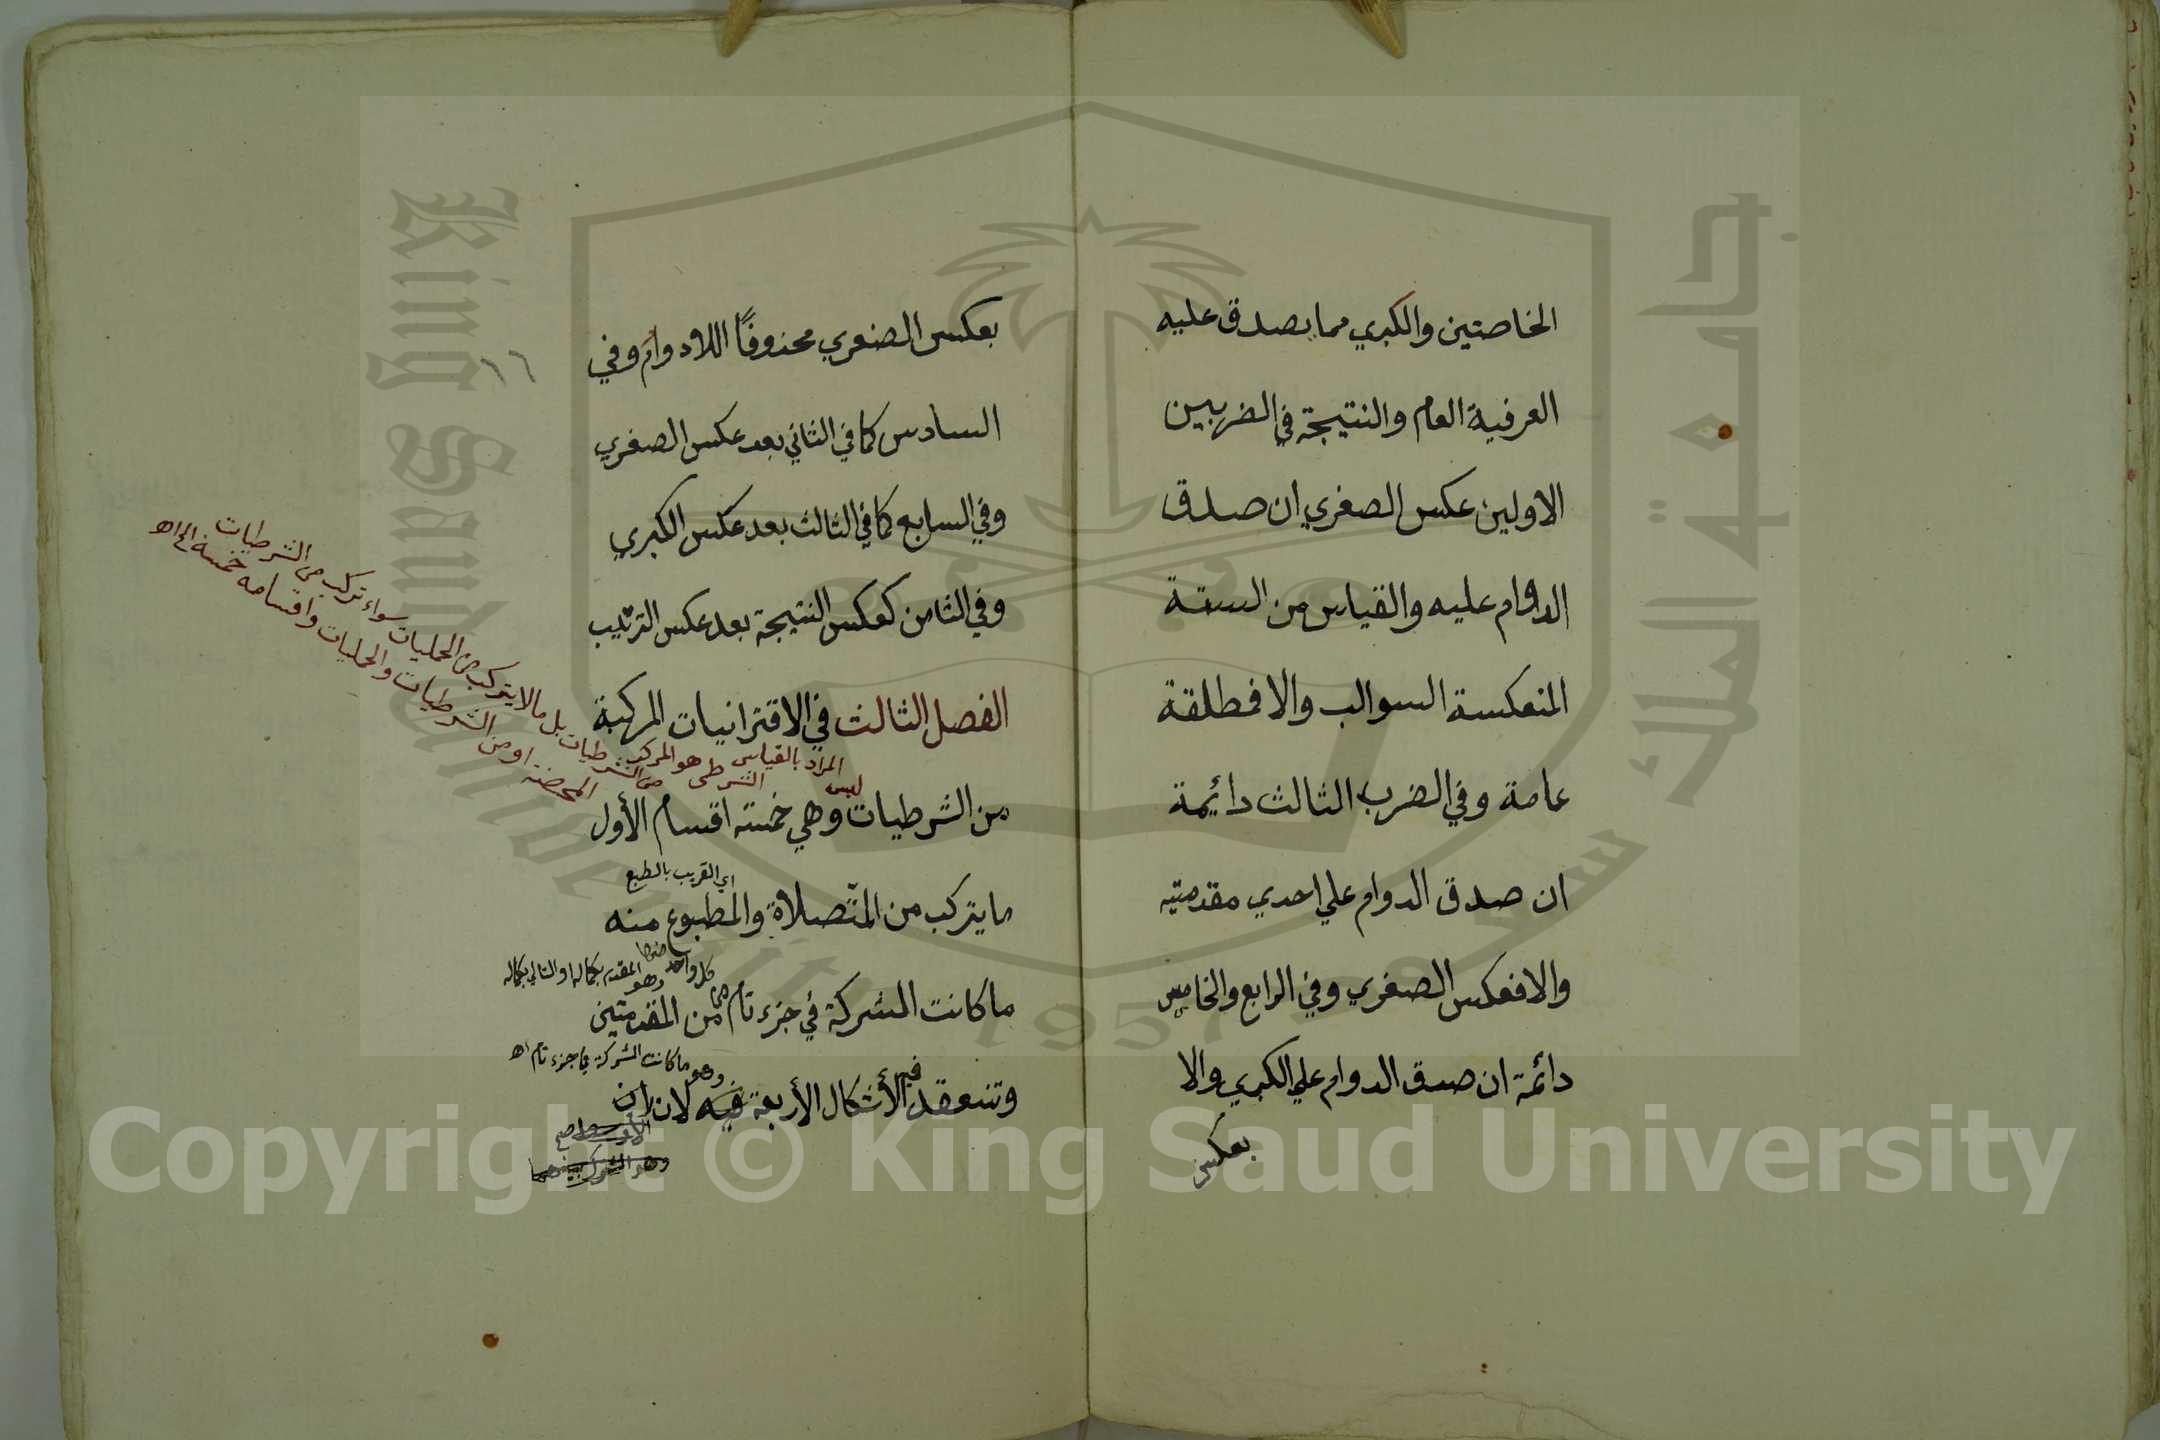 الخاصتين والكبري مما يصدق عليه
العرفية العام والنتيجة في الضربين
الاولين عكس الصغري ان صدق
الدوام عليه والقياس من الستة
المنعكسة السوالب والا فمطلقة
عامة وفي الضرب الثالث دائمة
ان صدق الدوام علي احدي مقدمتيه
والا فعكس الصغري وفي الرابع والخامس
دائمة ان صدق الدوام علي الكبري والا
بعكس
بعكس الصغري محذوفًا اللادوام وفي
١٦
السادس كما في الثاني بعد عكس الصغري
وفي السابع كما في الثالث بعد عكس الكبري
وفي الثامن كعكس النتيجة بعد عكس الترتيب
الفصل الثالث في الاقترانيات المركبة
ليس المراد بالقياس الشرطي هو المركب من الشرطيات المحضة
بل ما لا يتركب من الحمليات سواء تركب من الشرطيات
او من الشرطيات والحمليات واقسامه خمسة الخ اه
من الشرطيات وهي خمسة اقسام الأول
اي القريب بالطبع
ما يتركب من المتصلاة والمطبوع منه
كل واحد منهما
وهو المقدم بكماله او التالي بكماله
ما كانت الشركة في جزء تام من المقدمتين
وهو ما كانت الشركة في جزء تام اه
وتنعقد فيه الأشكال الأربعة فيه لان ان
الأوسط صح
وهو المشترك بينهما
King Saud University
جامعة الملك سعود
1957
Copyright © King Saud University